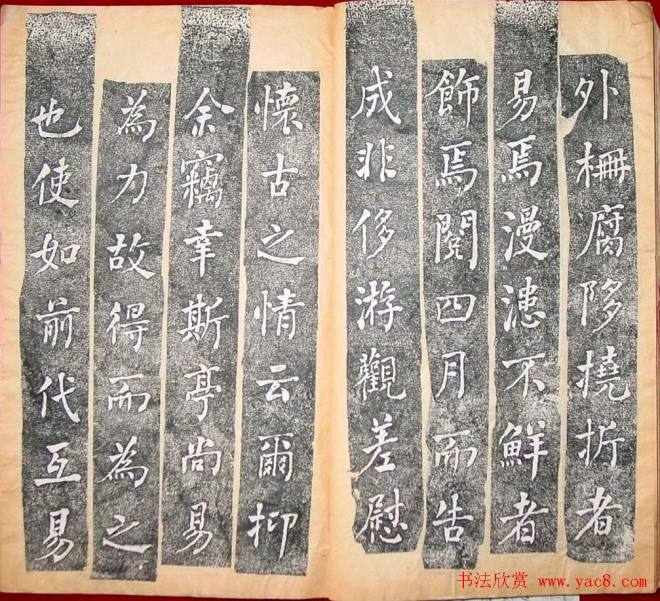 外柵腐陊撓折者
易焉漫漶不鮮者
飾焉閱四月而告
成非侈游觀差慰
懷古之情云爾抑
余竊幸斯亭尚易
為力故得而為之
也使如前代互易
书法欣赏 www.yac8.com